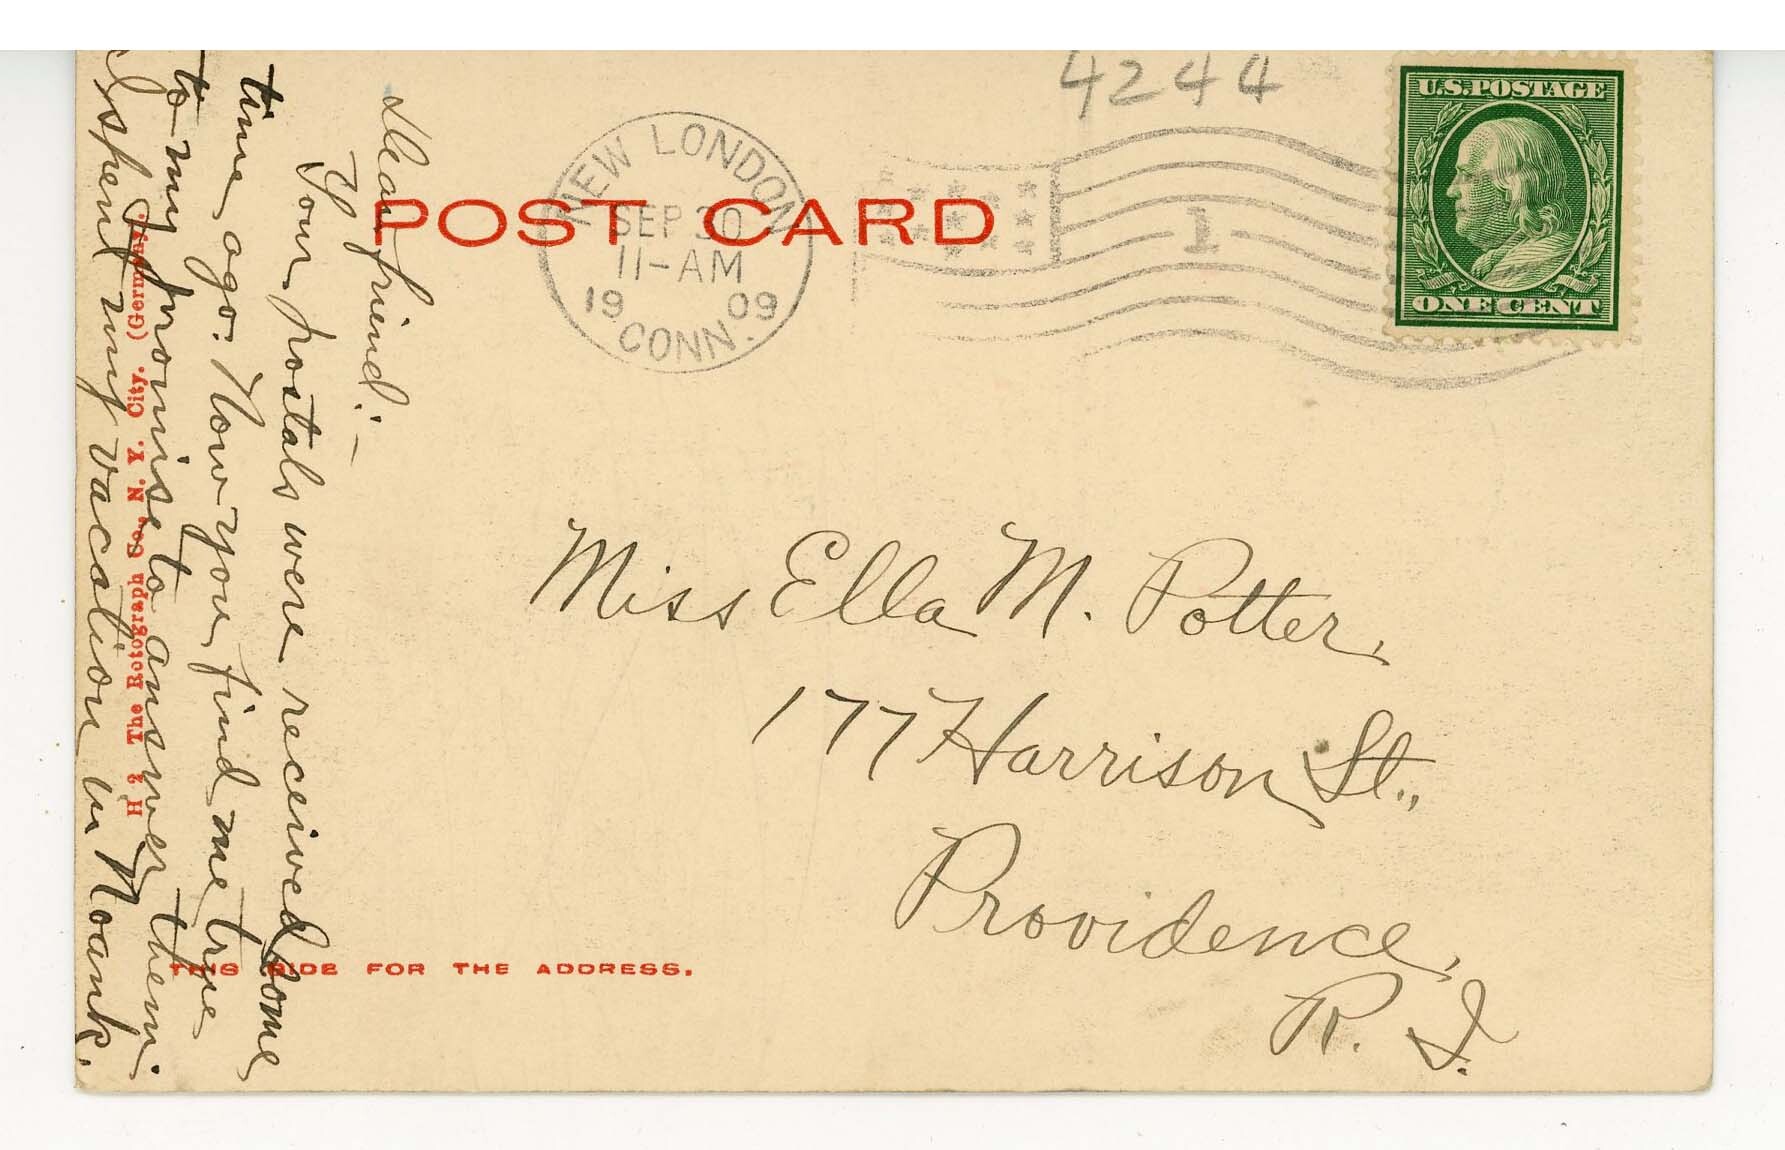 4244
U.S. POSTAGE
ONE CENT
NEW LONDON
SEP 30
11-AM
1909
CONN.
1
POST CARD
Dear friend:-
Your postals were received some
time ago. Now you find me true
to my promise to answer them.
I spent my vacation in Noank.
H 2 The Rotograph Co., N. Y. City. (Germany.)
Miss Ella M. Potter,
177 Harrison St.,
Providence,
R. I.
THIS SIDE FOR THE ADDRESS.